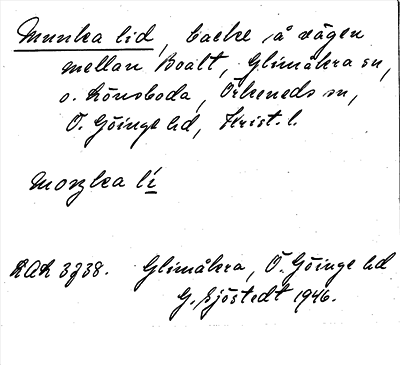 Munka lid, backe å vägen
mellan Boalt, Glimåkra sn,
o. Lönsboda, Örkeneds sn,
Ö. Göinge hd, Krist. l.
moŋka lí
Glimåkra, Ö. Göinge hd
G. Sjöstedt 1946.